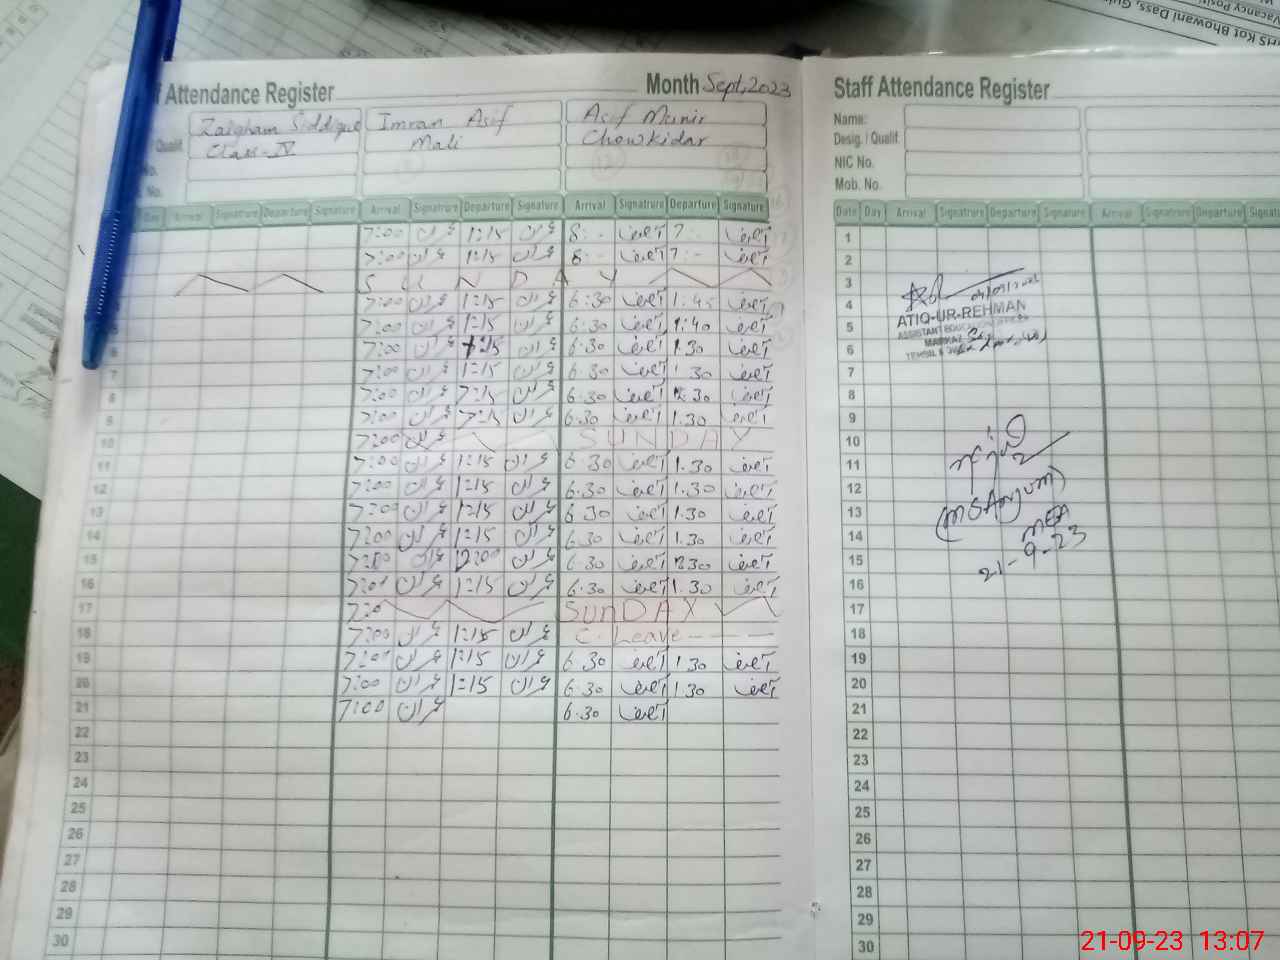 Vacancy Posit
HS Kot Bhowani Dass, Gu
f Attendance Register Month Sept, 2023
Zaigham Siddique Imran Asif Asif Munir
Qualif. Class-IV Mali Chowkidar
No.
No.
Day Arrival Signatrure Departure Signature Arrival Signatrure Departure Signature Arrival Signatrure Departure Signature
7:00 عمران 1:15 عمران 8:- آصف 7:- آصف
7:00 عمران 1:15 عمران 8:- آصف 7:- آصف
S U N D A Y
7:00 عمران 1:15 عمران 6:30 آصف 1:45 آصف
5 7:00 عمران 1:15 عمران 6:30 آصف 1:40 آصف
6 7:00 عمران 1:15 عمران 6:30 آصف 1.30 آصف
7 7:00 عمران 1:15 عمران 6:30 آصف 1.30 آصف
8 7:00 عمران 7:15 عمران 6:30 آصف 1.30 آصف
9 7:00 عمران 7:15 عمران 6:30 آصف 1.30 آصف
10 7:00 عمران SUNDAY
11 7:00 عمران 1:15 عمران 6.30 آصف 1.30 آصف
12 7:00 عمران 1:15 عمران 6.30 آصف 1.30 آصف
13 7:00 عمران 1:15 عمران 6.30 آصف 1.30 آصف
14 7:00 عمران 1:15 عمران 6.30 آصف 1.30 آصف
15 7:00 عمران 12:00 عمران 6.30 آصف 12.30 آصف
16 7:00 عمران 1:15 عمران 6.30 آصف 1.30 آصف
17 7:0 SunDAY
18 7:00 عمران 1:15 عمران C. Leave - - -
19 7:00 عمران 1:15 عمران 6.30 آصف 1.30 آصف
20 7:00 عمران 1:15 عمران 6.30 آصف 1.30 آصف
21 7:00 عمران 6.30 آصف
22
23
24
25
26
27
28
29
30
Staff Attendance Register
Name:
Desig. / Qualif.
NIC No.
Mob. No.
Date Day Arrival Signatrure Departure Signature Arrival Signatrure Departure Signat
1
2
3
4
ATIQ-UR-REHMAN
5
ASSISTANT EDUCATION OFFICER
MARKAZ
6
7
8
9
10
11
12
(MSAnjum)
13
MEA
14
21-9-23
15
16
17
18
19
20
21
22
23
24
25
26
27
28
29
30
21-09-23 13:07